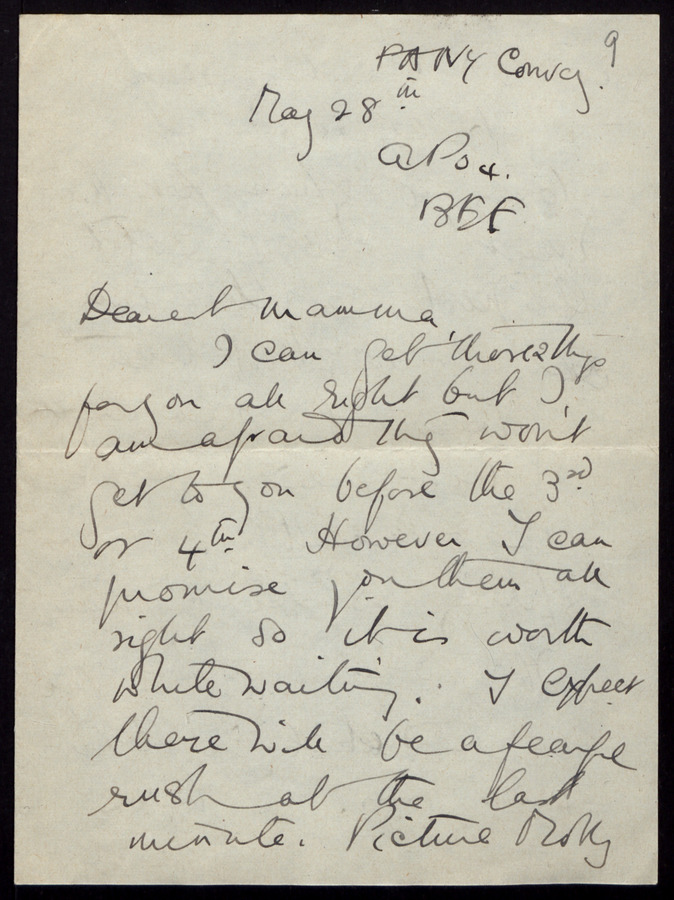 9
FANY Convoy.
May 28th
APO 4.
BEF
Dearest Mamma
I can get those things
for you all right but I
am afraid they won't
get to you before the 3rd
or 4th However I can
promise you them all
right so it is worth
while waiting. I expect
there will be a fearful
rush at the last
minute. Picture Molly